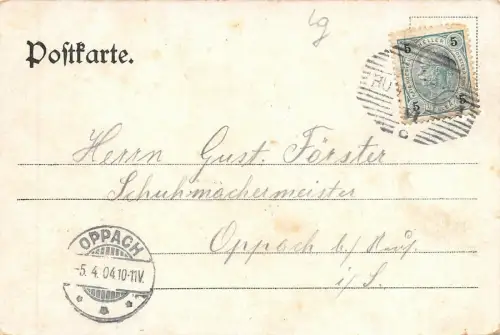 lg
Postkarte.
5 HELLER 5
5 5
HU
Herrn Gust. Förster
Schuhmachermeister
Oppach b/
i/S.
OPPACH
-5. 4. 04. 10-11V.